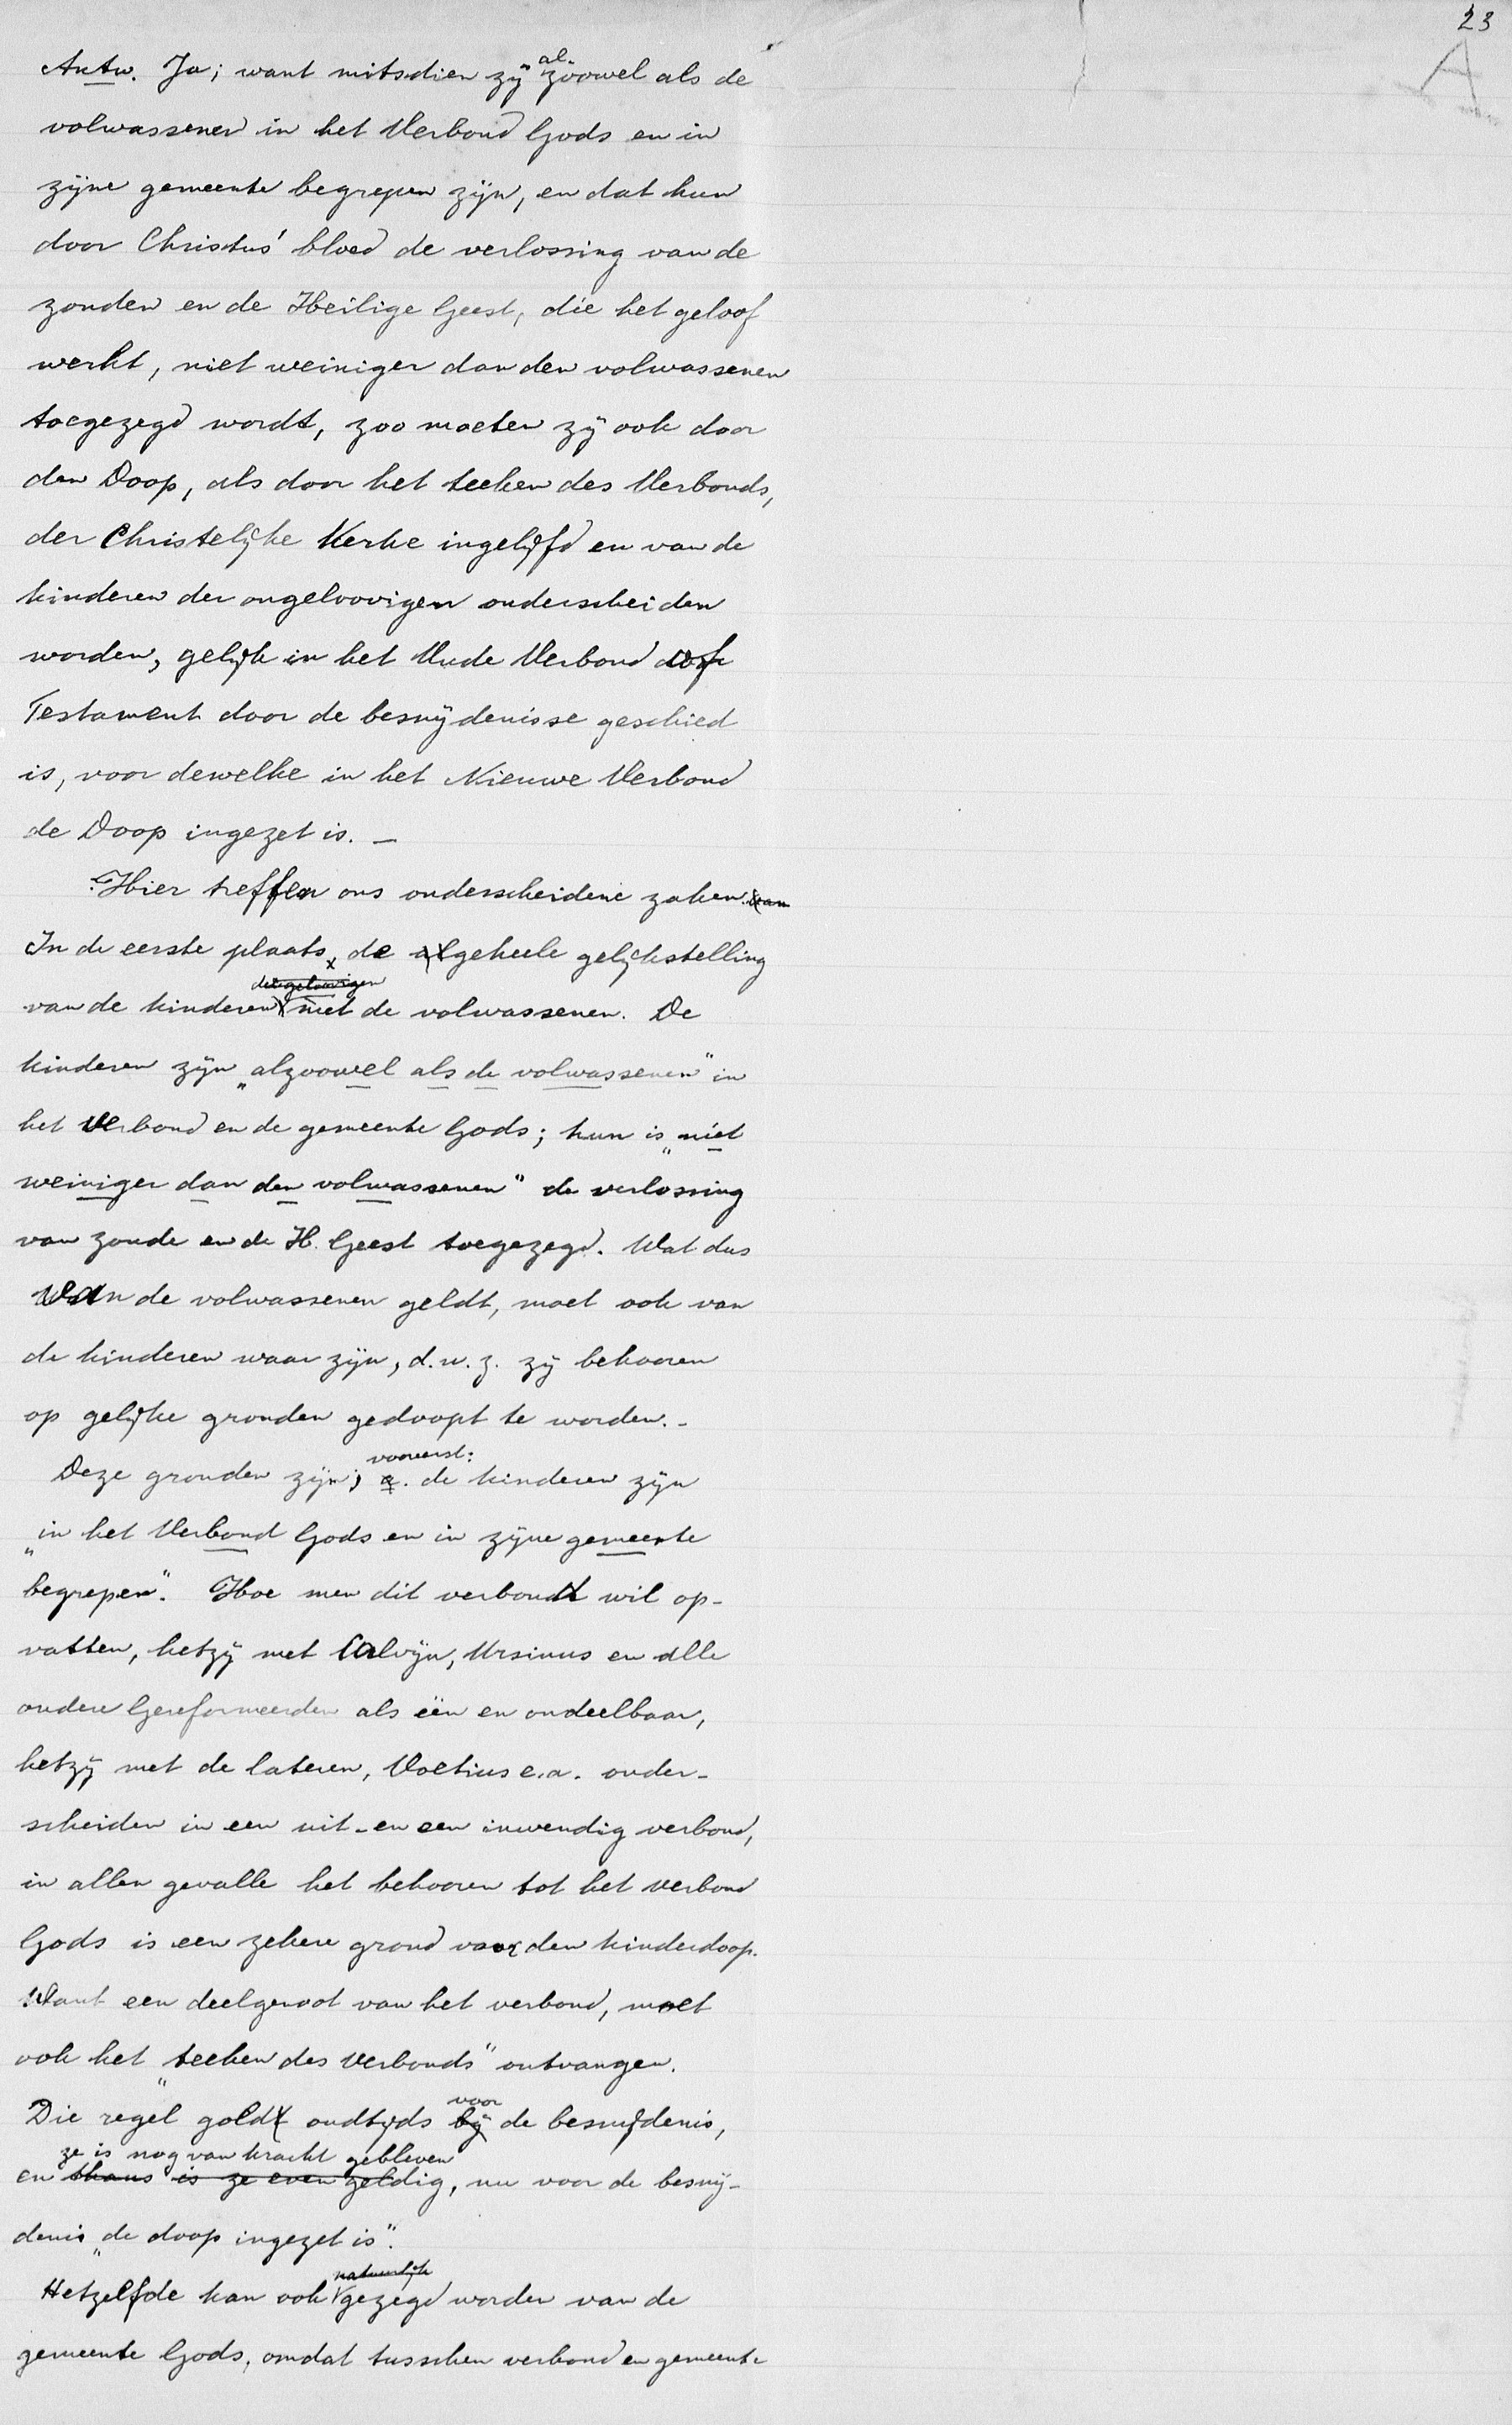 23
A
Antw. Ja; want mitsdien zij alzoowel als de
volwassenen in het Verbond Gods en in
zijne gemeente begrepen zijn, en dat hun
door Christus' bloed de verlossing van de
zonden en de Heilige Geest, die het geloof
werkt, niet weiniger dan den volwassenen
toegezegd wordt, zoo moeten zij ook door
den Doop, als door het teeken des Verbonds,
der Christelijke Kerke ingelijfd en van de
kinderen der ongeloovigen onderscheiden
worden, gelijk in het Oude Verbond of
Testament door de besnijdenisse geschied
is, voor dewelke in het Nieuwe Verbond
de Doop ingezet is. —
Hier treffen ons onderscheidene zaken.
In de eerste plaats de algeheele gelijkstelling
der geloovigen
van de kinderen met de volwassenen. De
kinderen zijn „alzoowel als de volwassenen" in
het Verbond en de gemeente Gods; hun is „niet
weiniger dan den volwassenen" de verlossing
van zonde en de H. Geest toegezegd. Wat dus
van de volwassenen geldt, moet ook van
de kinderen waar zijn, d.w.z. zij behooren
op gelijke gronden gedoopt te worden. -
vooreerst:
Deze gronden zijn; a. de kinderen zijn
„in het Verbond Gods en in zijne gemeente
begrepen". Hoe men dit verbond wil op-
vatten, hetzij met Calvijn, Ursinus en alle
oudere Gereformeerden als één en ondeelbaar,
hetzij met de lateren, Voetius e.a. onder-
scheiden in een uit- en een inwendig verbond,
in allen gevalle het behooren tot het verbond
Gods is een zekere grond voor den kinderdoop.
Want een deelgenoot van het verbond, moet
ook het „teeken des Verbonds" ontvangen.
voor
Die regel gold oudtijds bij de besnijdenis,
ze is nog van kracht gebleven
en thans is ze even geldig, nu voor de besnij-
denis „de doop ingezet is".
natuurlijk
Hetzelfde kan ook gezegd worden van de
gemeente Gods, omdat tusschen verbond en gemeente